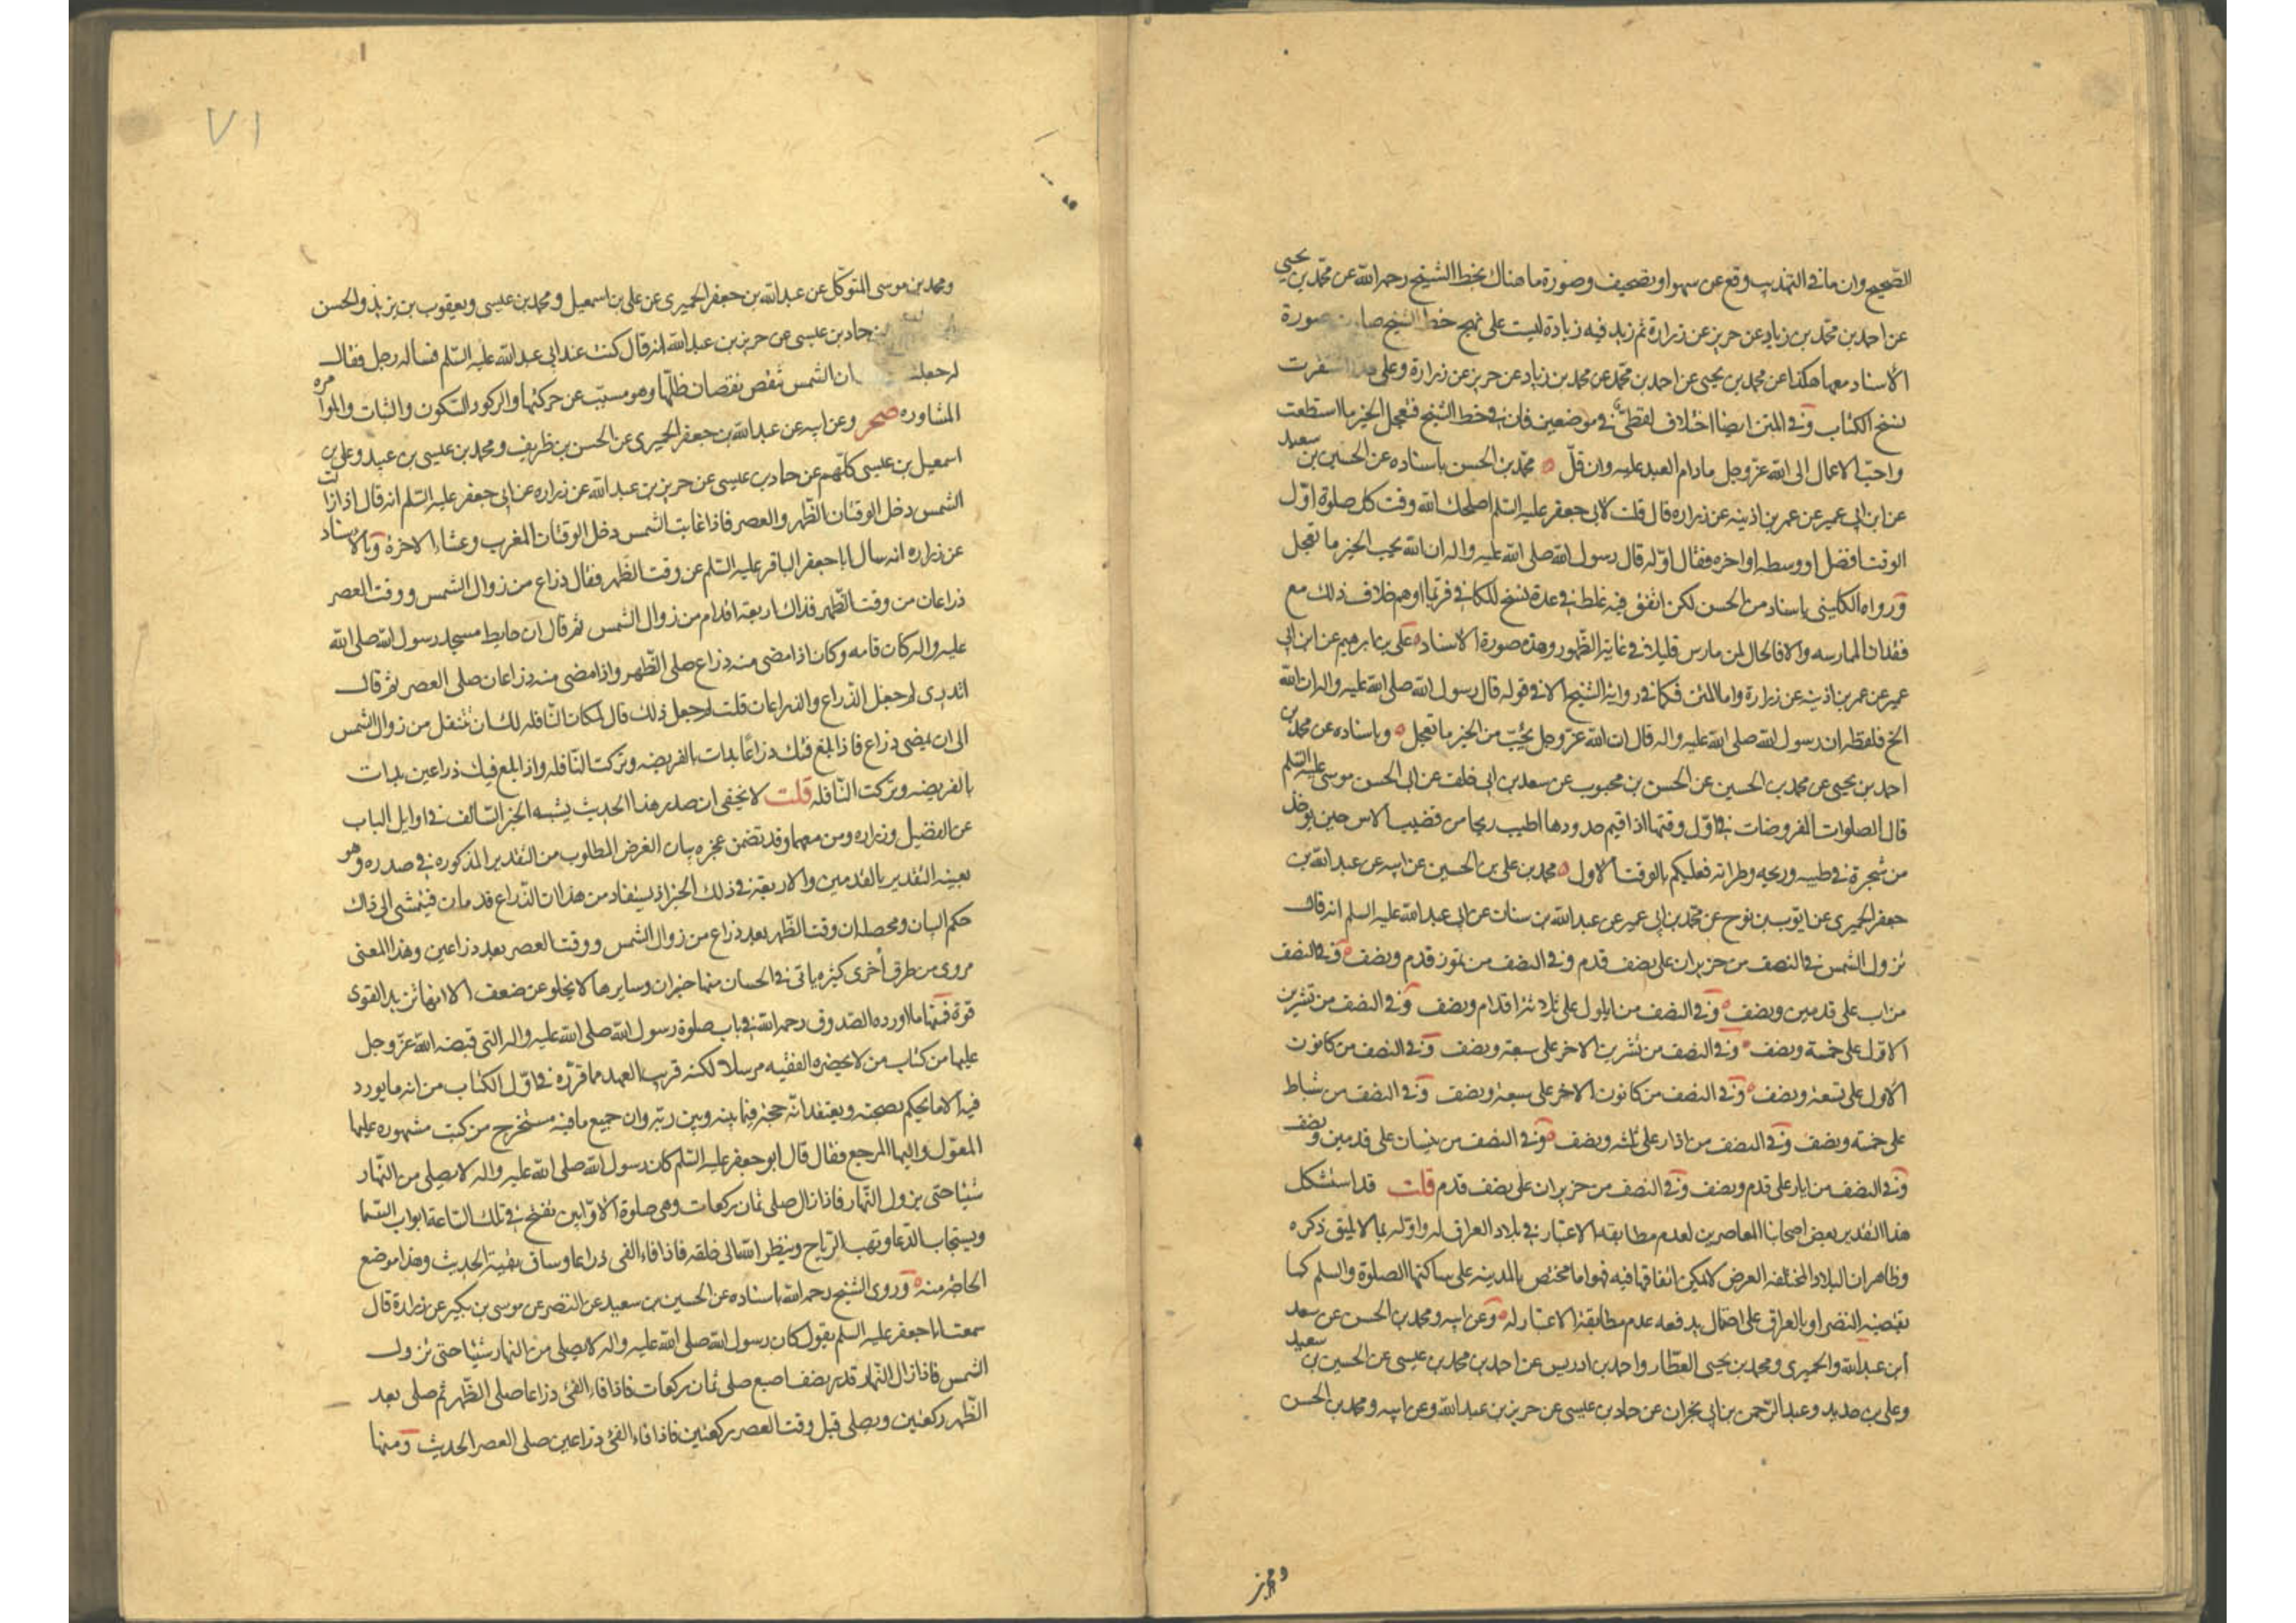 الصحيح وان ما في التهذيب وقع عن سهو او تصحيف وصورة ما هناك بخط الشيخ رحمه الله عن محمد بن يحيى
عن احمد بن محمد بن زياد عن حريز عن زرارة ثم زيد فيه زيادة ليست على نهج خط الشيخ صورة
الاسناد معها هكذا عن محمد بن يحيى عن احمد بن محمد عن محمد بن زياد عن حريز عن زرارة وعلى
نسخ الكتاب وفي المتن ايضا اختلاف لفظي في موضعين فان في خط الشيخ فعجل الخير ما استطعت
واحب الاعمال الى الله عز وجل ما دام العبد عليه وان قل محمد بن الحسن باسناده عن الحسين بن سعيد
عن ابن ابي عمير عن عمر بن اذينه عن زراره قال قلت لابي جعفر عليه السلم اصلحك الله وقت كل صلوة اول
الوقت افضل او وسطه او اخره فقال اوله قال رسول الله صلى الله عليه واله ان الله يحب الخير ما تعجل
ورواه الكليني باسناد من الحسن لكن اتفق فيه غلط في عدة نسخ للكافي فربما اوهم خلاف ذلك مع
فقدان الممارسه والا فالحال لمن مارس قليلا في غاية الظهور وهذه صورة الاسناد على بن ابرهيم عن ابن ابي
عمير عن عمر بن اذينه عن زرارة واما المتن فكما في رواية الشيخ الا في قوله قال رسول الله صلى الله عليه واله ان الله
الخ فلفظه ان رسول الله صلى الله عليه واله قال ان الله عز وجل يحب من الخير ما تعجل وباسناده عن محمد بن
احمد بن يحيى عن محمد بن الحسين عن الحسن بن محبوب عن سعد بن ابي خلف عن ابي الحسن موسى عليه السلم
قال الصلوات المفروضات في اول وقتها اذا اقيم حدودها اطيب ريحا من قضيب الاس حين يوخذ
من شجرة في طيبه وريحه وطراته فعليكم بالوقت الاول محمد بن على بن الحسين عن ابيه عن عبد الله بن
جعفر الحميرى عن ايوب بن نوح عن محمد بن ابي عمير عن عبد الله بن سنان عن ابي عبد الله عليه السلم انه قال
تزول الشمس في النصف من حزيران على نصف قدم وفي النصف من تموز قدم ونصف وفي النصف
من اب على قدمين ونصف وفي النصف من ايلول على ثلاثة اقدام ونصف وفي النصف من تشرين
الاول على خمسة ونصف وفي النصف من تشرين الاخر على سبعة ونصف وفي النصف من كانون
الاول على تسعة ونصف وفي النصف من كانون الاخر على سبعة ونصف وفي النصف من شباط
على خمسة ونصف وفي النصف من اذار على ثلثه ونصف وفي النصف من نيسان على قدمين ونصف
وفي النصف من ايار على قدم ونصف وفي النصف من حزيران على نصف قدم قلت قد استشكل
هذا التقدير بعض اصحابنا المعاصرين لعدم مطابقة الاعتبار في بلاد العراق له واوله بما لا يليق ذكره
وظاهر ان البلاد المختلفه العرض لا يمكن اتفاقها فيه فهو اما مختص بالمدينه على ساكنها الصلوة والسلم كما
يقتضيه النص او بالعراق على احتمال يدفعه عدم مطابقة الاعتبار له وعن ابيه ومحمد بن الحسن عن سعد
ابن عبد الله والحميرى ومحمد بن يحيى العطار واحمد بن ادريس عن احمد بن محمد بن عيسى عن الحسين بن سعيد
وعلى بن حديد وعبد الرحمن بن ابي نجران عن حماد بن عيسى عن حريز بن عبد الله وعن ابيه ومحمد بن الحسن
ومحمد بن
٧١
ومحمد بن موسى المتوكل عن عبد الله بن جعفر الحميرى عن على بن اسمعيل ومحمد بن عيسى ويعقوب بن يزيد والحسن
حماد بن عيسى عن حريز بن عبد الله انه قال كنت عند ابي عبد الله عليه السلم فساله رجل فقال
له جعلت ان الشمس تنقص نقصان ظلها وهو مسبب عن حركتها والركود السكون والثبات والموامره
المشاوره صحر وعن ابيه عن عبد الله بن جعفر الحميرى عن الحسن بن ظريف ومحمد بن عيسى بن عبيد وعلى بن
اسمعيل بن عيسى كلهم عن حماد بن عيسى عن حريز بن عبد الله عن زراره عن ابي جعفر عليه السلم انه قال اذا زالت
الشمس دخل الوقتان الظهر والعصر فاذا غابت الشمس دخل الوقتان المغرب وعشاء الاخرة وبالاسناد
عن زراره انه سال ابا جعفر الباقر عليه السلم عن وقت الظهر فقال ذراع من زوال الشمس ووقت العصر
ذراعان من وقت الظهر فذاك اربعة اقدام من زوال الشمس ثم قال ان حايط مسجد رسول الله صلى الله
عليه واله كان قامه وكان اذا مضى منه ذراع صلى الظهر واذا مضى منه ذراعان صلى العصر ثم قال
اتدرى لم جعل الذراع والذراعان قلت لم جعل ذلك قال لمكان النافله لك ان تتنفل من زوال الشمس
الى ان يمضى ذراع فاذا بلغ فيئك ذراعا بدات بالفريضه وتركت النافله واذا بلغ فيئك ذراعين بدات
بالفريضه وتركت النافله قلت لا يخفى ان صدر هذا الحديث يشبه الخبر السالف في اوايل الباب
عن الفضيل وزراره ومن معهما وقد تضمن عجزه بيان الغرض المطلوب من التقدير المذكوره في صدره وهو
بعينه التقدير بالقدمين والاربعة في ذلك الخبر اذ يستفاد من هذا ان الذراع قدمان فيتمشى الى ذاك
حكم البيان ومحصله ان وقت الظهر بعد ذراع من زوال الشمس ووقت العصر بعد ذراعين وهذا المعنى
مروى من طرق أخرى كثيره ياتي في الحسان منها خبران وسايرها لا يخلو عن ضعف الا انها تزيد القوى
قوة فمنها ما اورده الصدوق رحمه الله في باب صلوة رسول الله صلى الله عليه واله التي قبضه الله عز وجل
عليها من كتاب من لا يحضره الفقيه مرسلا لكنه قريب العهد مما قرره في اول الكتاب من انه ما يورد
فيه الا ما يحكم بصحته ويعتقد انه حجة فيما بينه وبين ربه وان جميع ما فيه مستخرج من كتب مشهوره عليها
المعول واليها المرجع فقال قال ابو جعفر عليه السلم كان رسول الله صلى الله عليه واله لا يصلى من النهار
شيئا حتى يزول النهار فاذا زال صلى ثمان ركعات وهي صلوة الاوابين تفتح في تلك الساعة ابواب السما
ويستجاب الدعا وتهب الرياح وينظر الله الى خلقه فاذا فاء الفئ ذراعا وساق بقية الحديث وهذا موضع
الحاجة منه وروى الشيخ رحمه الله باسناده عن الحسين بن سعيد عن النضر عن موسى بن بكير عن زرارة قال
سمعت ابا جعفر عليه السلم يقول كان رسول الله صلى الله عليه واله لا يصلى من النهار شيئا حتى تزول
الشمس فاذا زال النهار قدر نصف اصبع صلى ثمان ركعات فاذا فاء الفئ ذراعا صلى الظهر ثم صلى بعد
الظهر ركعتين ويصلى قبل وقت العصر ركعتين فاذا فاء الفئ ذراعين صلى العصر الحديث ومنها